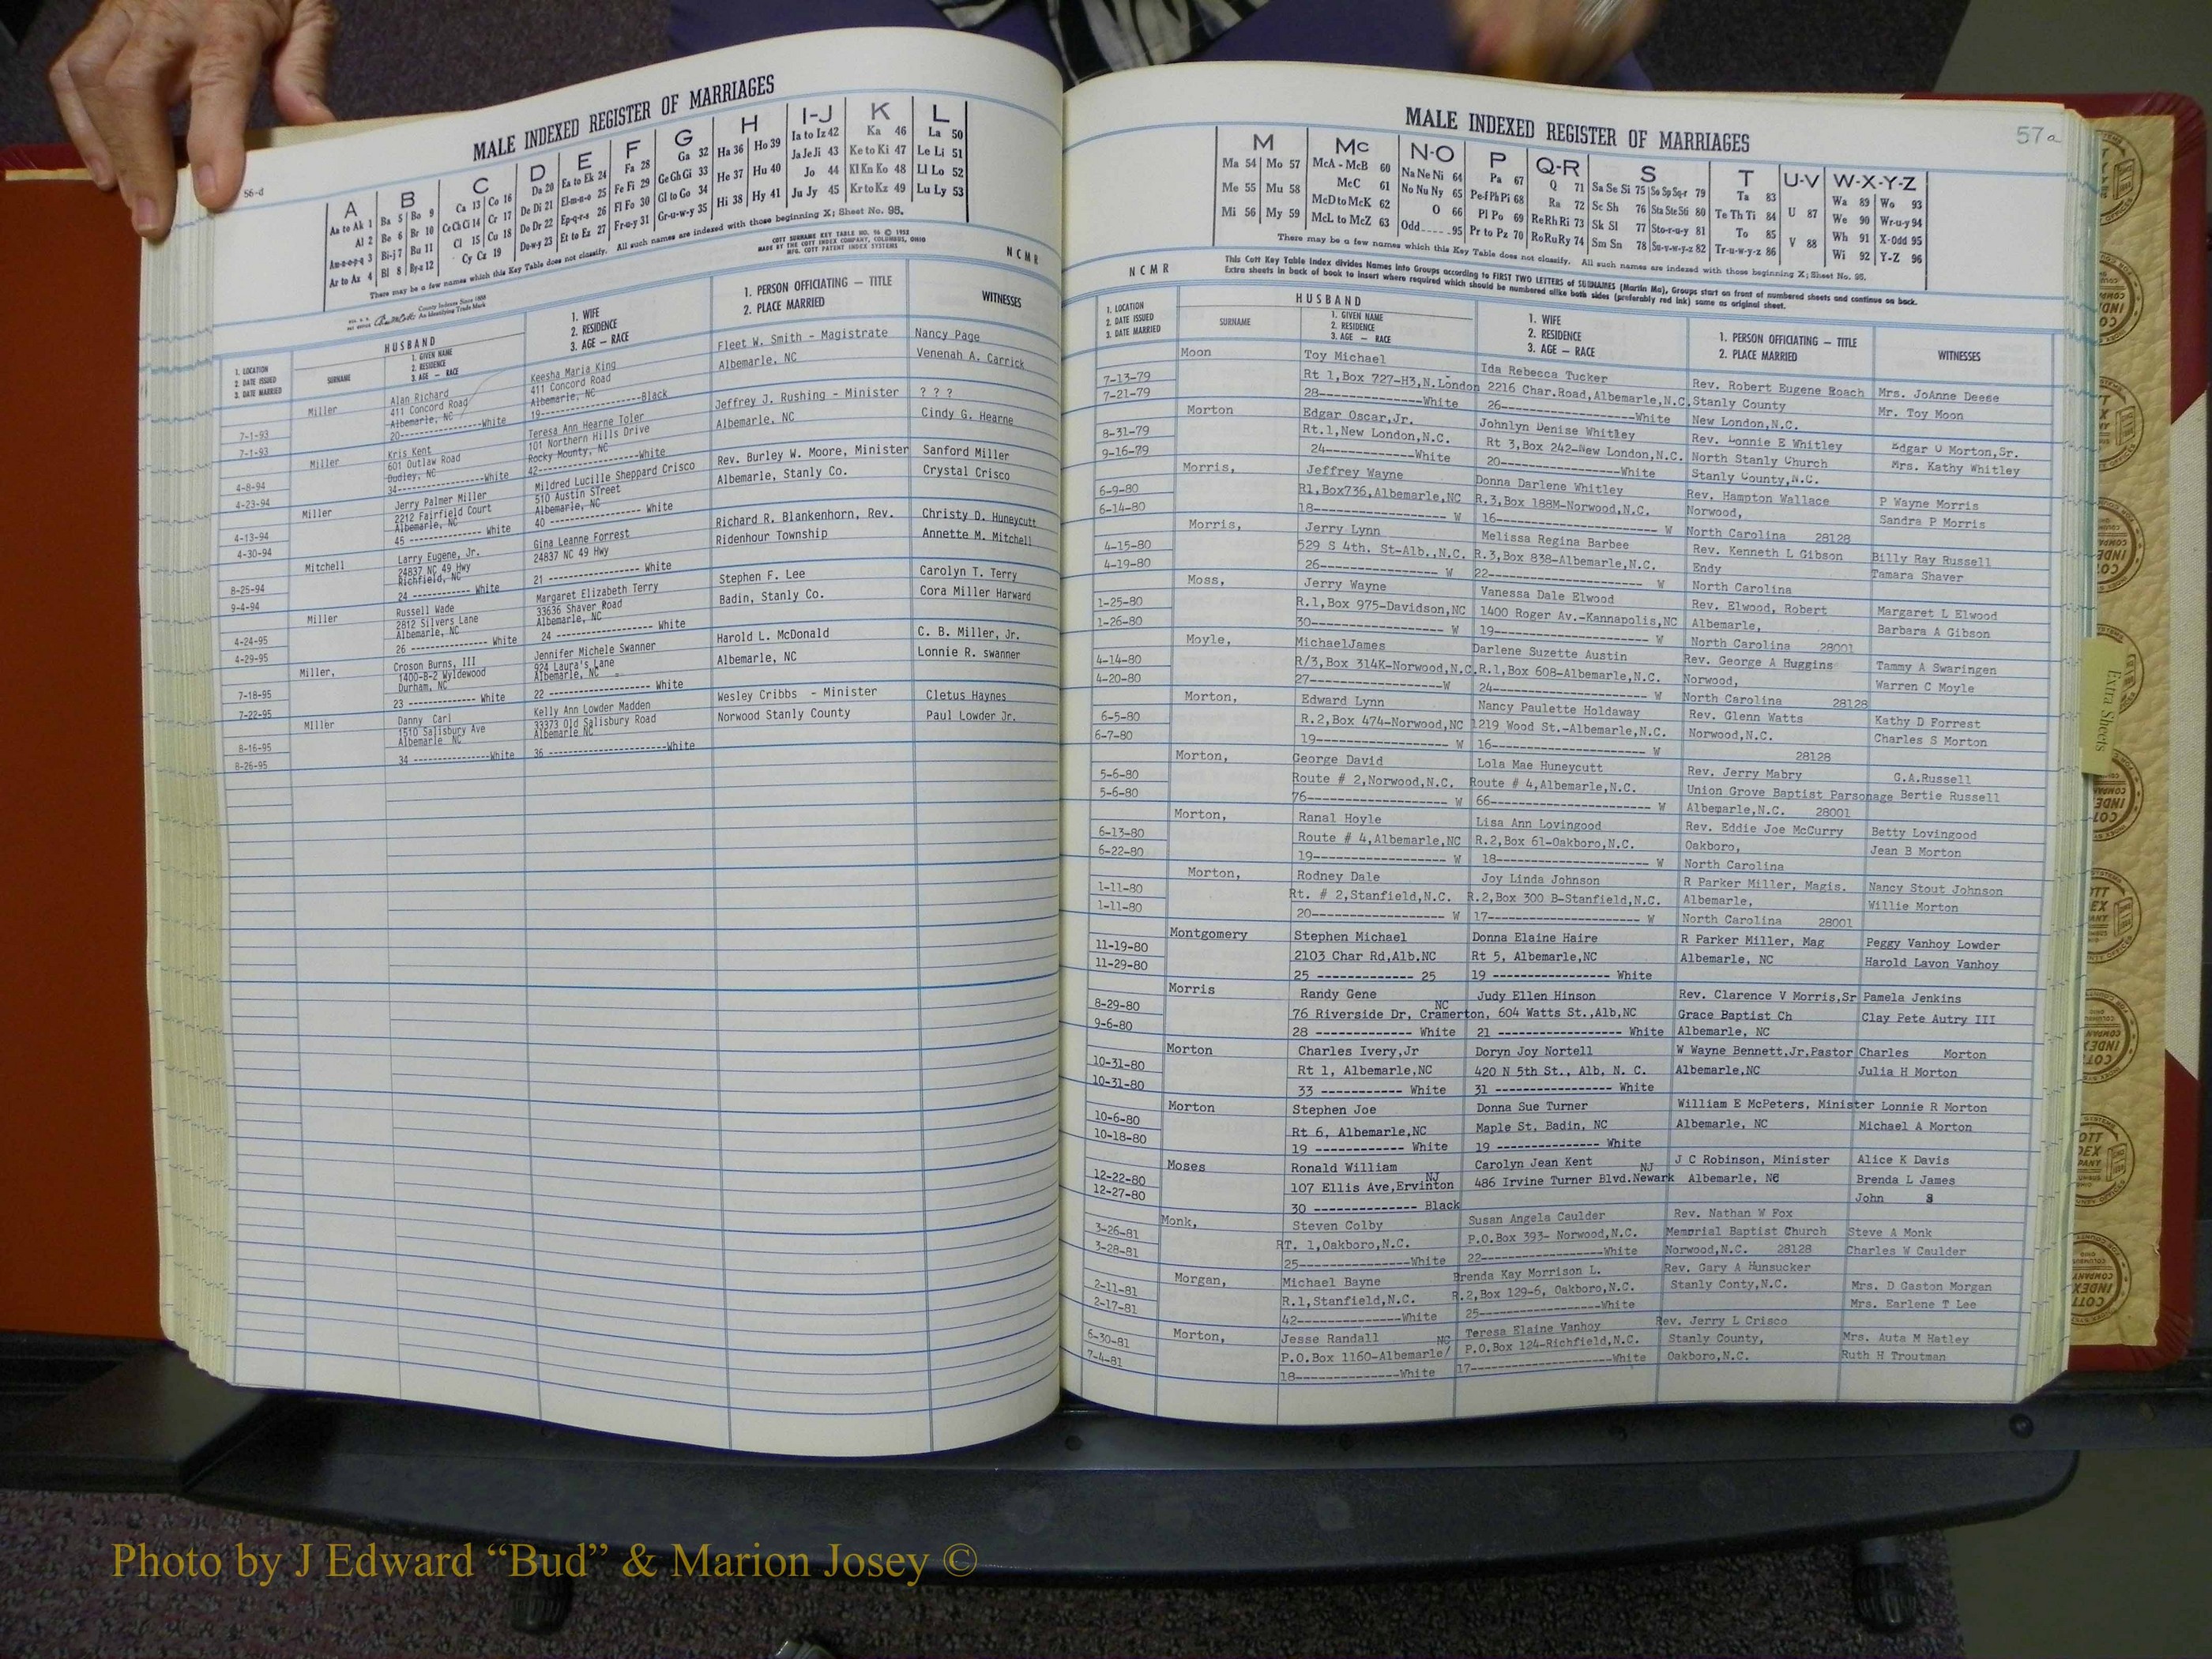 56-d
MALE INDEXED REGISTER OF MARRIAGES
A B C D E F G H I-J K L
Aa to Ak 1 Ba 5 Bo 9 Ca 13 Co 16 Da 20 Ea to Ek 24 Fa 28 Ga 32 Ha 36 Ho 39 Ia to Iz 42 Ka 46 La 50
Al 2 Be 6 Br 10 Ce Ch Ci 14 Cr 17 De Di 21 El-m-n-o 25 Fe Fi 29 Ge Gh Gi 33 He 37 Hu 40 Ja Je Ji 43 Ke to Ki 47 Le Li 51
Am-n-o-p-q 3 Bi-j 7 Bu 11 Cl 15 Cu 18 Do Dr 22 Ep-q-r-s 26 Fl Fo 30 Gl to Go 34 Hi 38 Hy 41 Jo 44 Kl Kn Ko 48 Ll Lo 52
Ar to Az 4 Bl 8 By-z 12 Cy Cz 19 Du-w-y 23 Et to Ez 27 Fr-u-y 31 Gr-u-w-y 35 Ju Jy 45 Kr to Kz 49 Lu Ly 53
There may be a few names which this Key Table does not classify. All such names are indexed with those beginning X; Sheet No. 95.
COTT SURNAME KEY TABLE NO. 96 © 1952
MADE BY THE COTT INDEX COMPANY, COLUMBUS, OHIO
MFG. COTT PATENT INDEX SYSTEMS
N C M R
County Indexes Since 1888
An Identifying Trade Mark
1. LOCATION
2. DATE ISSUED
3. DATE MARRIED
HUSBAND
SURNAME
1. GIVEN NAME
2. RESIDENCE
3. AGE — RACE
1. WIFE
2. RESIDENCE
3. AGE — RACE
1. PERSON OFFICIATING — TITLE
2. PLACE MARRIED
WITNESSES
Miller Alan Richard Keesha Maria King Fleet W. Smith - Magistrate Nancy Page
411 Concord Road 411 Concord Road Albemarle, NC Venenah A. Carrick
Albemarle, NC Albemarle, NC
7-1-93 20--------------------White 19--------------------Black
7-1-93
Miller Kris Kent Teresa Ann Hearne Toler Jeffrey J. Rushing - Minister ? ? ?
601 Outlaw Road 101 Northern Hills Drive Albemarle, NC Cindy G. Hearne
Dudley, NC Rocky Mounty, NC
4-8-94 34--------------------White 42--------------------White
4-23-94
Miller Jerry Palmer Miller Mildred Lucille Sheppard Crisco Rev. Burley W. Moore, Minister Sanford Miller
2212 Fairfield Court 510 Austin STreet Albemarle, Stanly Co. Crystal Crisco
Albemarle, NC Albemarle, NC
4-13-94 45 --------- White 40 --------------- White
4-30-94
Mitchell Larry Eugene, Jr. Gina Leanne Forrest Richard R. Blankenhorn, Rev. Christy D. Huneycutt
24837 NC 49 Hwy 24837 NC 49 Hwy Ridenhour Township Annette M. Mitchell
Richfield, NC
8-25-94 24 ------------ White 21 --------------- White
9-4-94
Miller Russell Wade Margaret Elizabeth Terry Stephen F. Lee Carolyn T. Terry
2812 Silvers Lane 33636 Shaver Road Badin, Stanly Co. Cora Miller Harward
Albemarle, NC Albemarle, NC
4-24-95 26 ------------- White 24 ----------------- White
4-29-95
Miller, Croson Burns, III Jennifer Michele Swanner Harold L. McDonald C. B. Miller, Jr.
1400-B-2 Wyldewood 924 Laura's Lane Albemarle, NC Lonnie R. swanner
Durham, NC Albemarle, NC
7-18-95 23 ----------- White 22 ----------------- White
7-22-95
Miller Danny Carl Kelly Ann Lowder Madden Wesley Cribbs - Minister Cletus Haynes
1510 Salisbury Ave 33373 Old Salisbury Road Norwood Stanly County Paul Lowder Jr.
Albemarle NC Albemarle NC
8-16-95 34 ---------------White 36 -----------------------White
8-26-95
57a
MALE INDEXED REGISTER OF MARRIAGES
M Mc N-O P Q-R S T U-V W-X-Y-Z
Ma 54 Mo 57 McA - McB 60 Na Ne Ni 64 Pa 67 Q 71 Sa Se Si 75 So Sp Sq-r 79 Ta 83 Wa 89 Wo 93
Me 55 Mu 58 McC 61 No Nu Ny 65 Pe-f Ph Pi 68 Ra 72 Sc Sh 76 Sta Ste Sti 80 Te Th Ti 84 U 87 We 90 Wr-u-y 94
Mi 56 My 59 McD to McK 62 O 66 Pl Po 69 Re Rh Ri 73 Sk Sl 77 Sto-r-u-y 81 To 85 Wh 91 X-Odd 95
McL to McZ 63 Odd.....95 Pr to Pz 70 Ro Ru Ry 74 Sm Sn 78 Su-v-w-y-z 82 Tr-u-w-y-z 86 V 88 Wi 92 Y-Z 96
There may be a few names which this Key Table does not classify. All such names are indexed with those beginning X; Sheet No. 95.
N C M R
This Cott Key Table Index divides Names into Groups according to FIRST TWO LETTERS of SURNAMES (Martin Ma), Groups start on front of numbered sheets and continue on back.
Extra sheets in back of book to insert where required which should be numbered alike both sides (preferably red ink) same as original sheet.
1. LOCATION
2. DATE ISSUED
3. DATE MARRIED
HUSBAND
SURNAME
1. GIVEN NAME
2. RESIDENCE
3. AGE — RACE
1. WIFE
2. RESIDENCE
3. AGE — RACE
1. PERSON OFFICIATING — TITLE
2. PLACE MARRIED
WITNESSES
Moon Toy Michael Ida Rebecca Tucker Rev. Robert Eugene Roach Mrs. JoAnne Deese
7-13-79 Rt 1,Box 727-H3,N.London 2216 Char.Road,Albemarle,N.C. Stanly County Mr. Toy Moon
7-21-79 28---------------White 26-------------------White New London,N.C.
Morton Edgar Oscar,Jr. Johnlyn Denise Whitley Rev. Lonnie E Whitley Edgar O Morton,Sr.
8-31-79 Rt.1,New London,N.C. Rt 3,Box 242-New London,N.C. North Stanly Church Mrs. Kathy Whitley
9-16-79 24-------------White 20-------------------White Stanly County,N.C.
Morris, Jeffrey Wayne Donna Darlene Whitley Rev. Hampton Wallace P Wayne Morris
6-9-80 R1,Box736,Albemarle,NC R.3,Box 188M-Norwood,N.C. Norwood, Sandra P Morris
6-14-80 18------------------- W 16--------------------- W North Carolina 28128
Morris, Jerry Lynn Melissa Regina Barbee Rev. Kenneth L Gibson Billy Ray Russell
4-15-80 529 S 4th. St-Alb.,N.C. R.3,Box 838-Albemarle,N.C. Endy Tamara Shaver
4-19-80 26----------------- W 22--------------------- W North Carolina
Moss, Jerry Wayne Vanessa Dale Elwood Rev. Elwood, Robert Margaret L Elwood
1-25-80 R.1,Box 975-Davidson,NC 1400 Roger Av.-Kannapolis,NC Albemarle, Barbara A Gibson
1-26-80 30------------------ W 19-------------------- W North Carolina 28001
Moyle, MichaelJames Darlene Suzette Austin Rev. George A Huggins Tammy A Swaringen
4-14-80 R/3,Box 314K-Norwood,N.C. R.1,Box 608-Albemarle,N.C. Norwood, Warren C Moyle
4-20-80 27------------------W 24-------------------- W North Carolina 28128
Morton, Edward Lynn Nancy Paulette Holdaway Rev. Glenn Watts Kathy D Forrest
6-5-80 R.2,Box 474-Norwood,NC 1219 Wood St.-Albemarle,N.C. Norwood,N.C. Charles S Morton
6-7-80 19------------------ W 16-------------------- W 28128
Morton, George David Lola Mae Huneycutt Rev. Jerry Mabry G.A.Russell
5-6-80 Route # 2,Norwood,N.C. Route # 4,Albemarle,N.C. Union Grove Baptist Parsonage Bertie Russell
5-6-80 76------------------- W 66--------------------- W Albemarle,N.C. 28001
Morton, Ranal Hoyle Lisa Ann Lovingood Rev. Eddie Joe McCurry Betty Lovingood
6-13-80 Route # 4,Albemarle,NC R.2,Box 61-Oakboro,N.C. Oakboro, Jean B Morton
6-22-80 19------------------ W 18-------------------- W North Carolina
Morton, Rodney Dale Joy Linda Johnson R Parker Miller, Magis. Nancy Stout Johnson
1-11-80 Rt. # 2,Stanfield,N.C. R.2,Box 300 B-Stanfield,N.C. Albemarle, Willie Morton
1-11-80 20------------------ W 17-------------------- W North Carolina 28001
Montgomery Stephen Michael Donna Elaine Haire R Parker Miller, Mag Peggy Vanhoy Lowder
11-19-80 2103 Char Rd,Alb.NC Rt 5, Albemarle,NC Albemarle, NC Harold Lavon Vanhoy
11-29-80 25 ------------- 25 19 ---------------- White
Morris Randy Gene Judy Ellen Hinson Rev. Clarence V Morris,Sr Pamela Jenkins
8-29-80 76 Riverside Dr, Cramerton, NC 604 Watts St.,Alb,NC Grace Baptist Ch Clay Pete Autry III
9-6-80 28 ------------- White 21 ---------------- White Albemarle, NC
Morton Charles Ivery,Jr Doryn Joy Nortell W Wayne Bennett,Jr,Pastor Charles Morton
10-31-80 Rt 1, Albemarle,NC 420 N 5th St., Alb, N. C. Albemarle,NC Julia H Morton
10-31-80 33 ----------- White 31 --------------- White
Morton Stephen Joe Donna Sue Turner William E McPeters, Minister Lonnie R Morton
10-6-80 Rt 6, Albemarle,NC Maple St, Badin, NC Albemarle, NC Michael A Morton
10-18-80 19 ------------ White 19 -------------- White
Moses Ronald William Carolyn Jean Kent J C Robinson, Minister Alice K Davis
12-22-80 107 Ellis Ave,Ervinton NJ 486 Irvine Turner Blvd.Newark NJ Albemarle, NC Brenda L James
12-27-80 30 -------------- Black John
Monk, Steven Colby Susan Angela Caulder Rev. Nathan W Fox
3-26-81 RT. 1,Oakboro,N.C. P.O.Box 393- Norwood,N.C. Memorial Baptist Church Steve A Monk
3-28-81 25---------------White 22------------------White Norwood,N.C. 28128 Charles W Caulder
Morgan, Michael Bayne Brenda Kay Morrison L. Rev. Gary A Hunsucker
2-11-81 R.1,Stanfield,N.C. R.2,Box 129-6, Oakboro,N.C. Stanly Conty,N.C. Mrs. D Gaston Morgan
2-17-81 42--------------White 25-----------------White Mrs. Earlene T Lee
Morton, Jesse Randall Teresa Elaine Vanhoy Rev. Jerry L Crisco
6-30-81 P.O.Box 1160-Albemarle/ NC P.O.Box 124-Richfield,N.C. Stanly County, Mrs. Auta M Hatley
7-4-81 18---------------White 17--------------------White Oakboro,N.C. Ruth H Troutman
Extra Sheets
Photo by J Edward “Bud” & Marion Josey ©